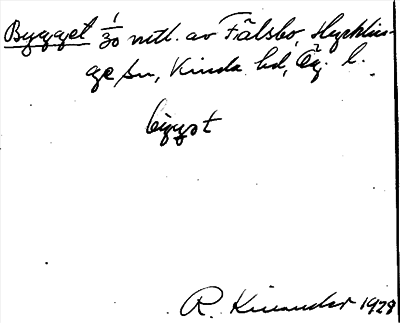 Bygget 1/30 mtl. av Fålsbo, Hycklin-
ge sn, Kinda hd, Ög. l.
bygǝt
R. Kinander 1928